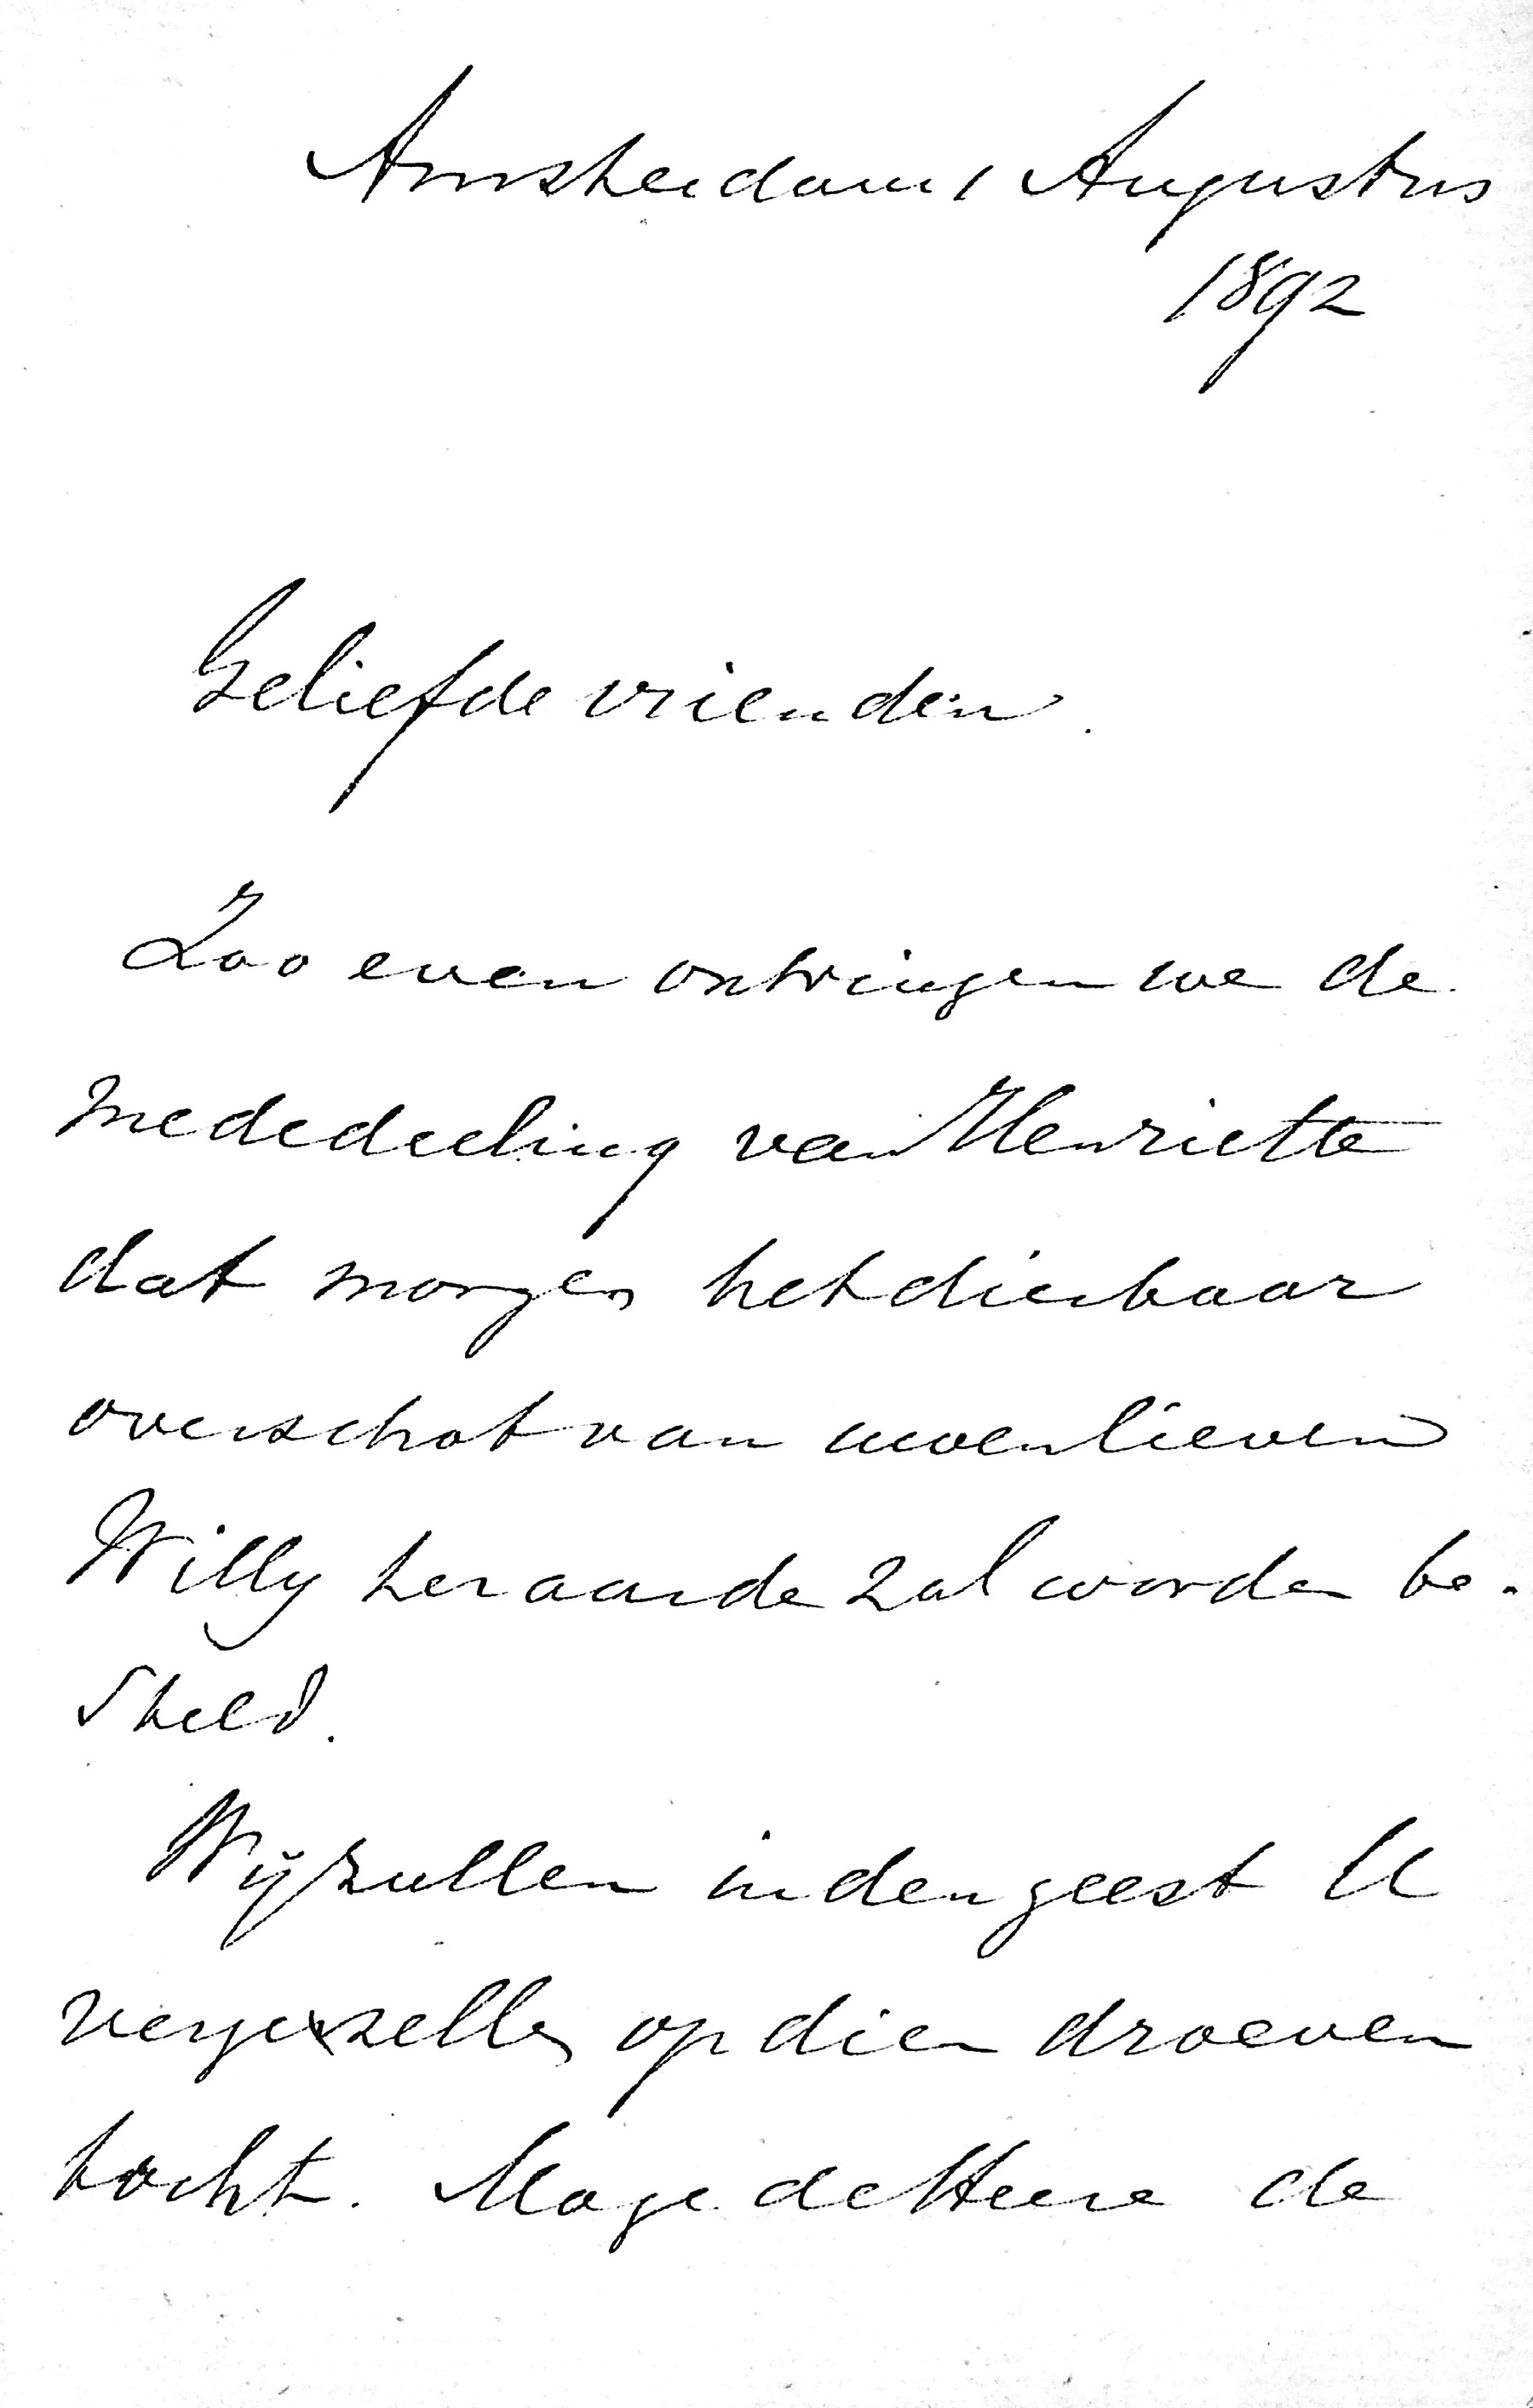 Amsterdam 1 Augustus
1892
Geliefde vrienden.
Zoo even ontvingen we de
mededeeling van Henriette
dat morgen het dierbaar
overschot van uwen lieven
Willy ter aarde zal worden be-
steld.
Wij zullen in den geest U
vergezellen op dien droeven
tocht. Moge de Heere de